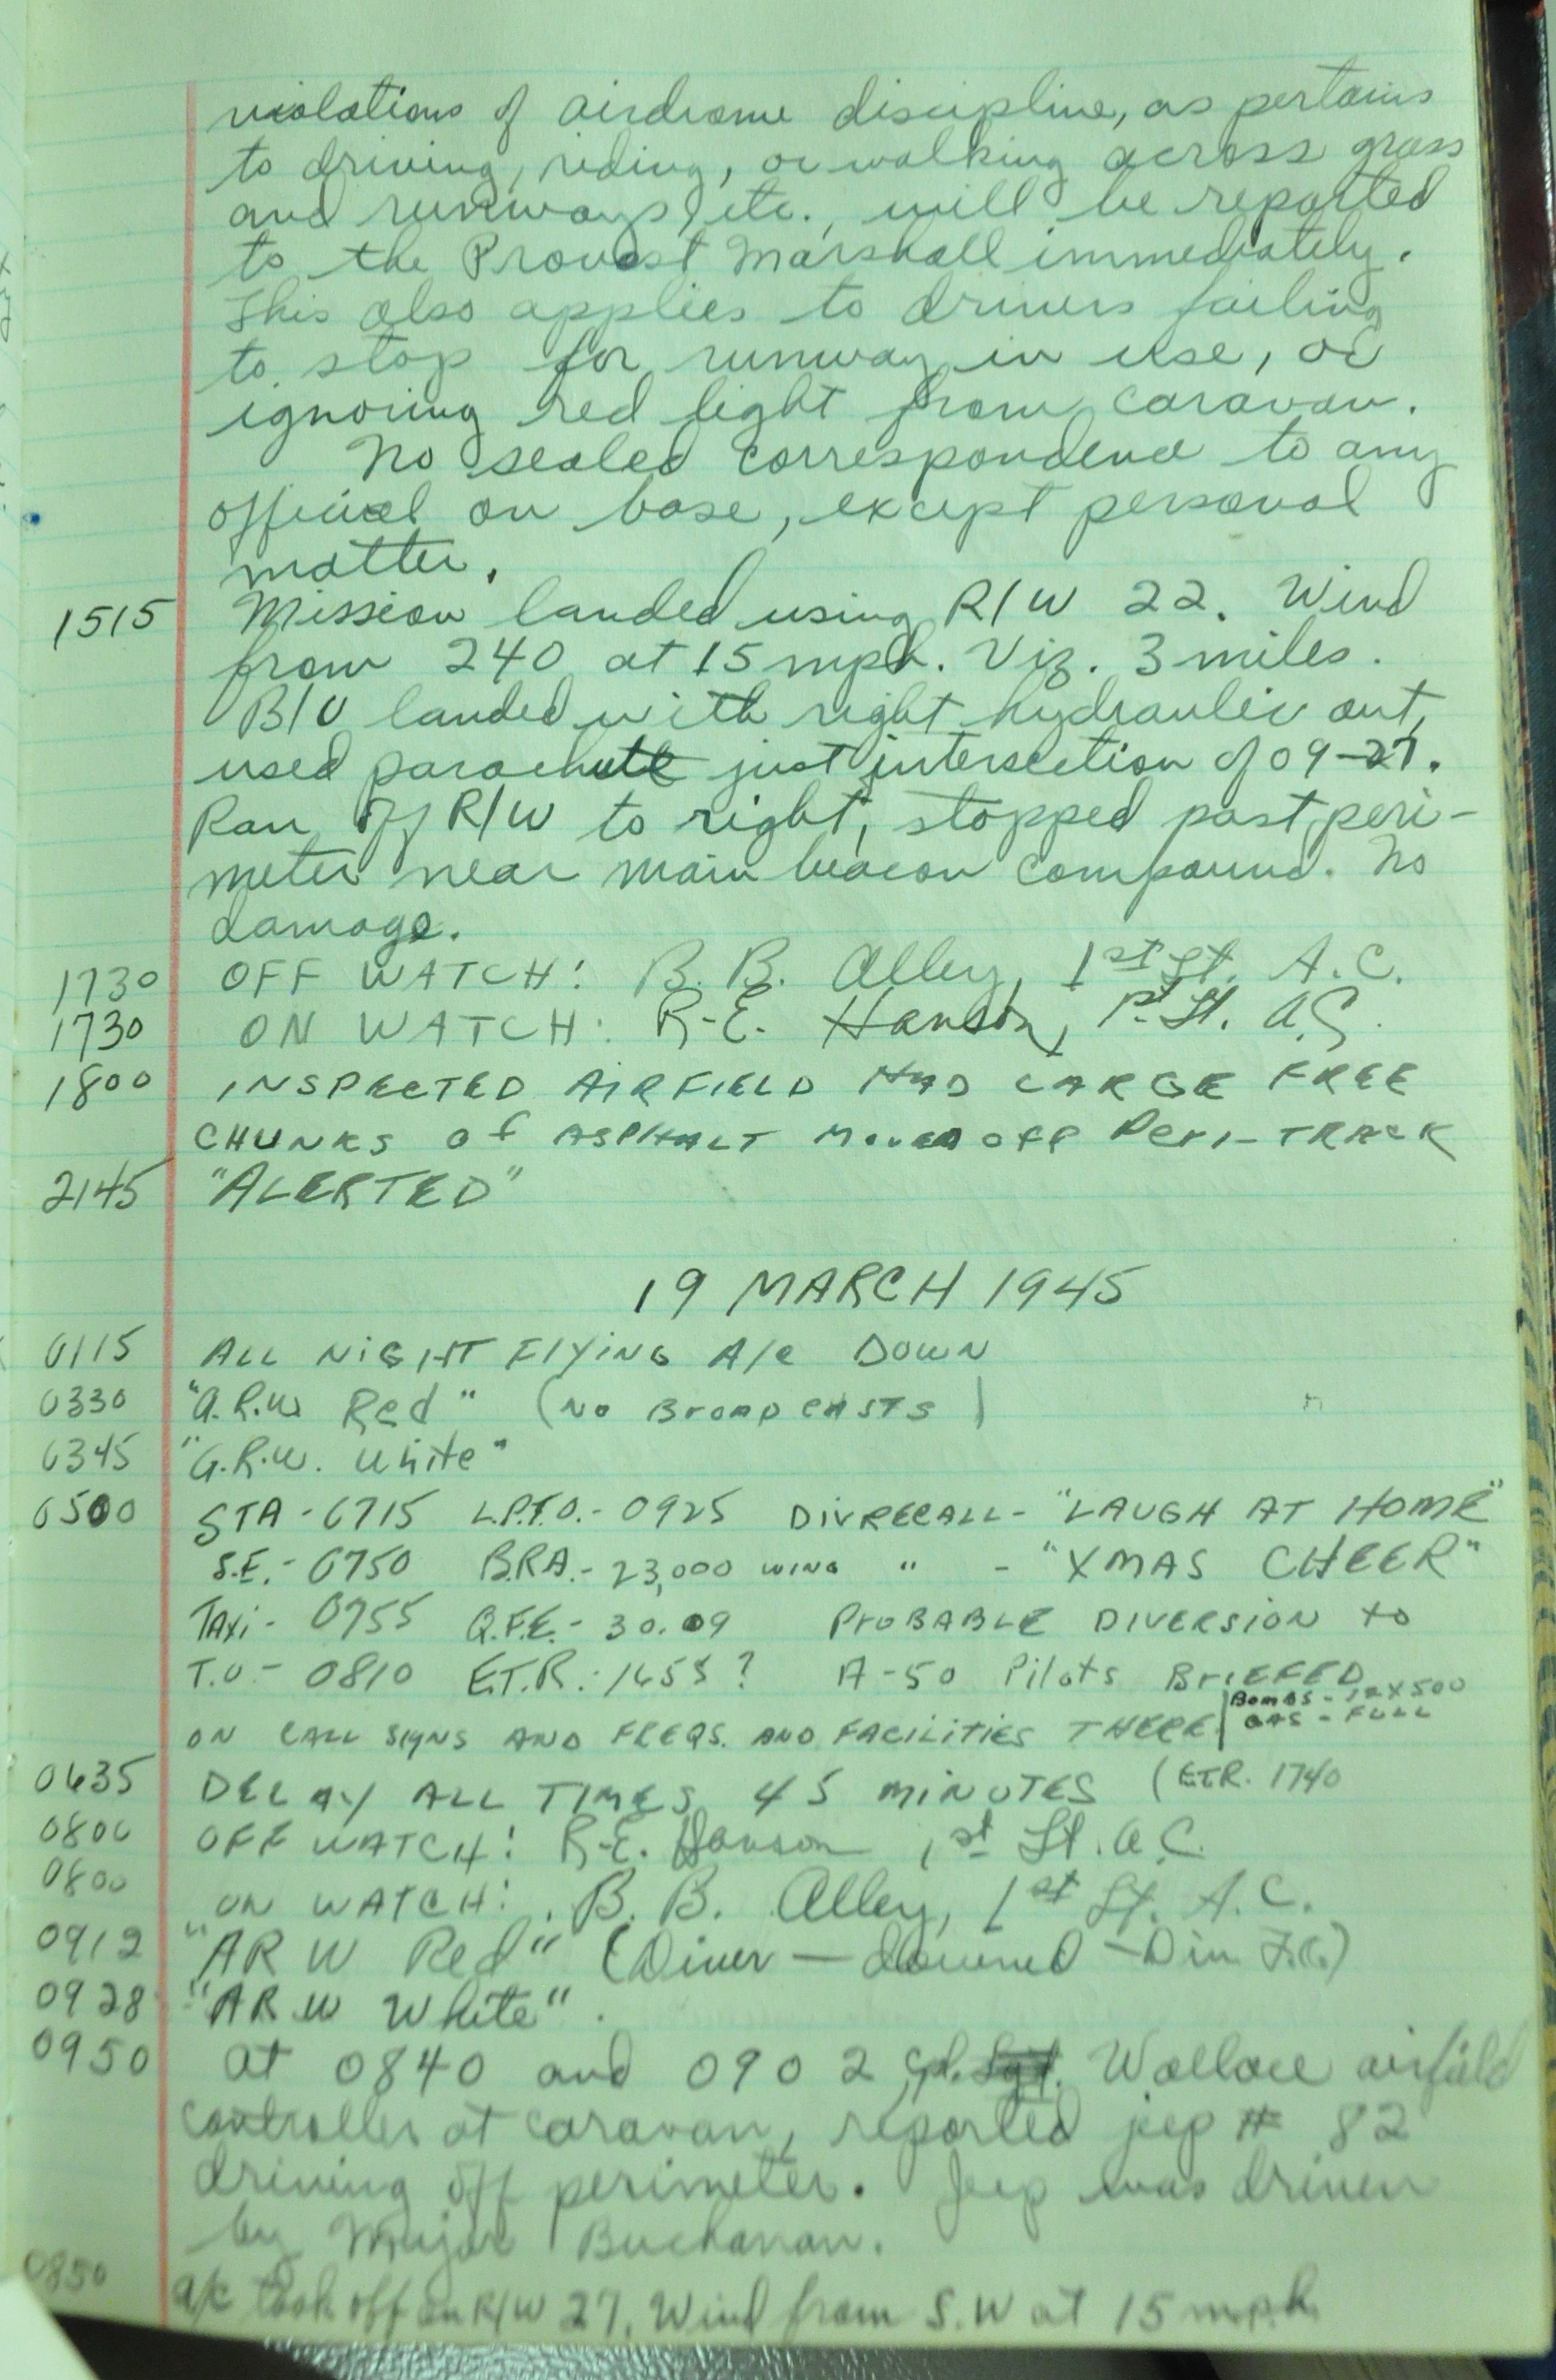 violations of airdrome discipline, as pertains
to driving, riding, or walking across grass
and runways, etc., will be reported
to the Provost Marshall immediately.
This also applies to drivers failing
to stop for runway in use, or
ignoring red light from caravan.
No sealed correspondence to any
official on base, except personal
matter.
1515 Mission landed using R/W 22. Wind
from 240 at 15 mph. Viz. 3 miles.
B/U landed with right hydraulic out,
used parachute just intersection of 09-27.
Ran off R/W to right, stopped past peri-
meter near main beacon compound. No
damage.
1730 OFF WATCH: B. B. Alley, 1st Lt. A.C.
1730 ON WATCH: R.E. Hanson, 1st Lt. A.C.
1800 INSPECTED AIRFIELD HAD LARGE FREE
CHUNKS of ASPHALT Moved OFF Peri-TRACK
2145 "ALERTED"
19 MARCH 1945
0115 ALL NIGHT FlYING A/C DOWN
0330 "A.R.W Red" (NO BroadCASTS)
0345 "A.R.W. White"
0500 STA - 0715 L.P.T.O. - 0925 DIVRECALL - "LAUGH AT HOME"
S.E. - 0750 B.R.A. - 23,000 WING " - "XMAS CHEER"
TAXi - 0755 Q.F.E. - 30.09 ProBABLE DIVERSION to
T.O - 0810 E.T.R. - 1655? A-50 Pilots BriEFED
ON CALL SIGNS AND FREQS. AND FACILITIES THERE Bombs - 12X500
GAS - FULL
0635 DELAY ALL TIMES 45 MINUTES (ETR. 1740
0800 OFF WATCH: R.E. Hanson 1st Lt. A.C.
0800 ON WATCH: B. B. Alley, 1st Lt. A.C.
0912 "AR W Red" (Diver — downed — Div F.C.)
0928 "AR W White".
0950 At 0840 and 0902 Cpl. Sgt. Wallace airfield
controller at caravan, reported jeep # 82
driving off perimeter. Jeep was driven
by Major Buchanan.
0850 a/c took off on R/W 27. Wind from S.W at 15 m.p.h.